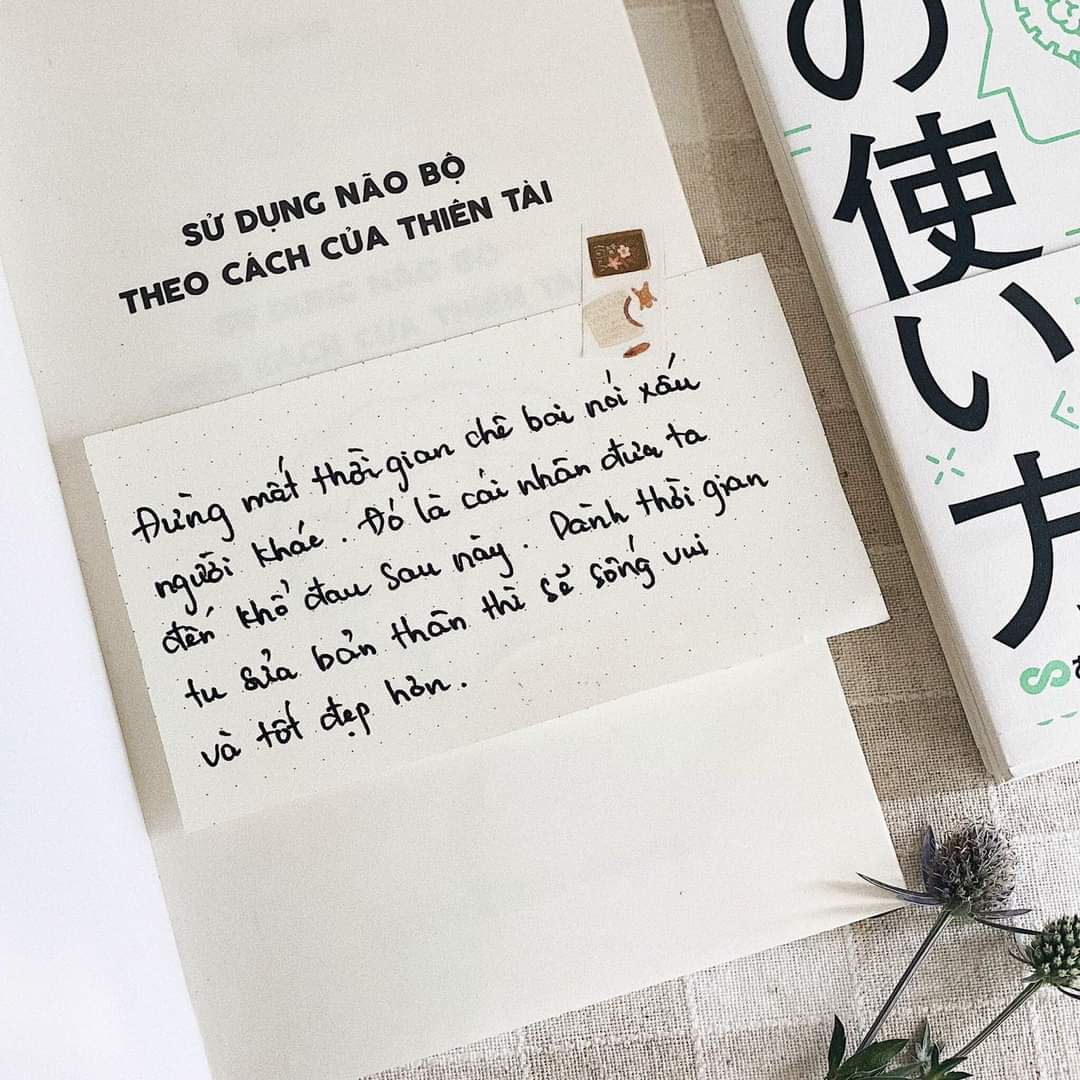 SỬ DỤNG NÃO BỘ
THEO CÁCH CỦA THIÊN TÀI
Đừng mất thời gian chê bai nói xấu
người khác. Đó là cái nhân đưa ta
đến khổ đau sau này. Dành thời gian
tu sửa bản thân thì sẽ sống vui
và tốt đẹp hơn.
の
使
い
方